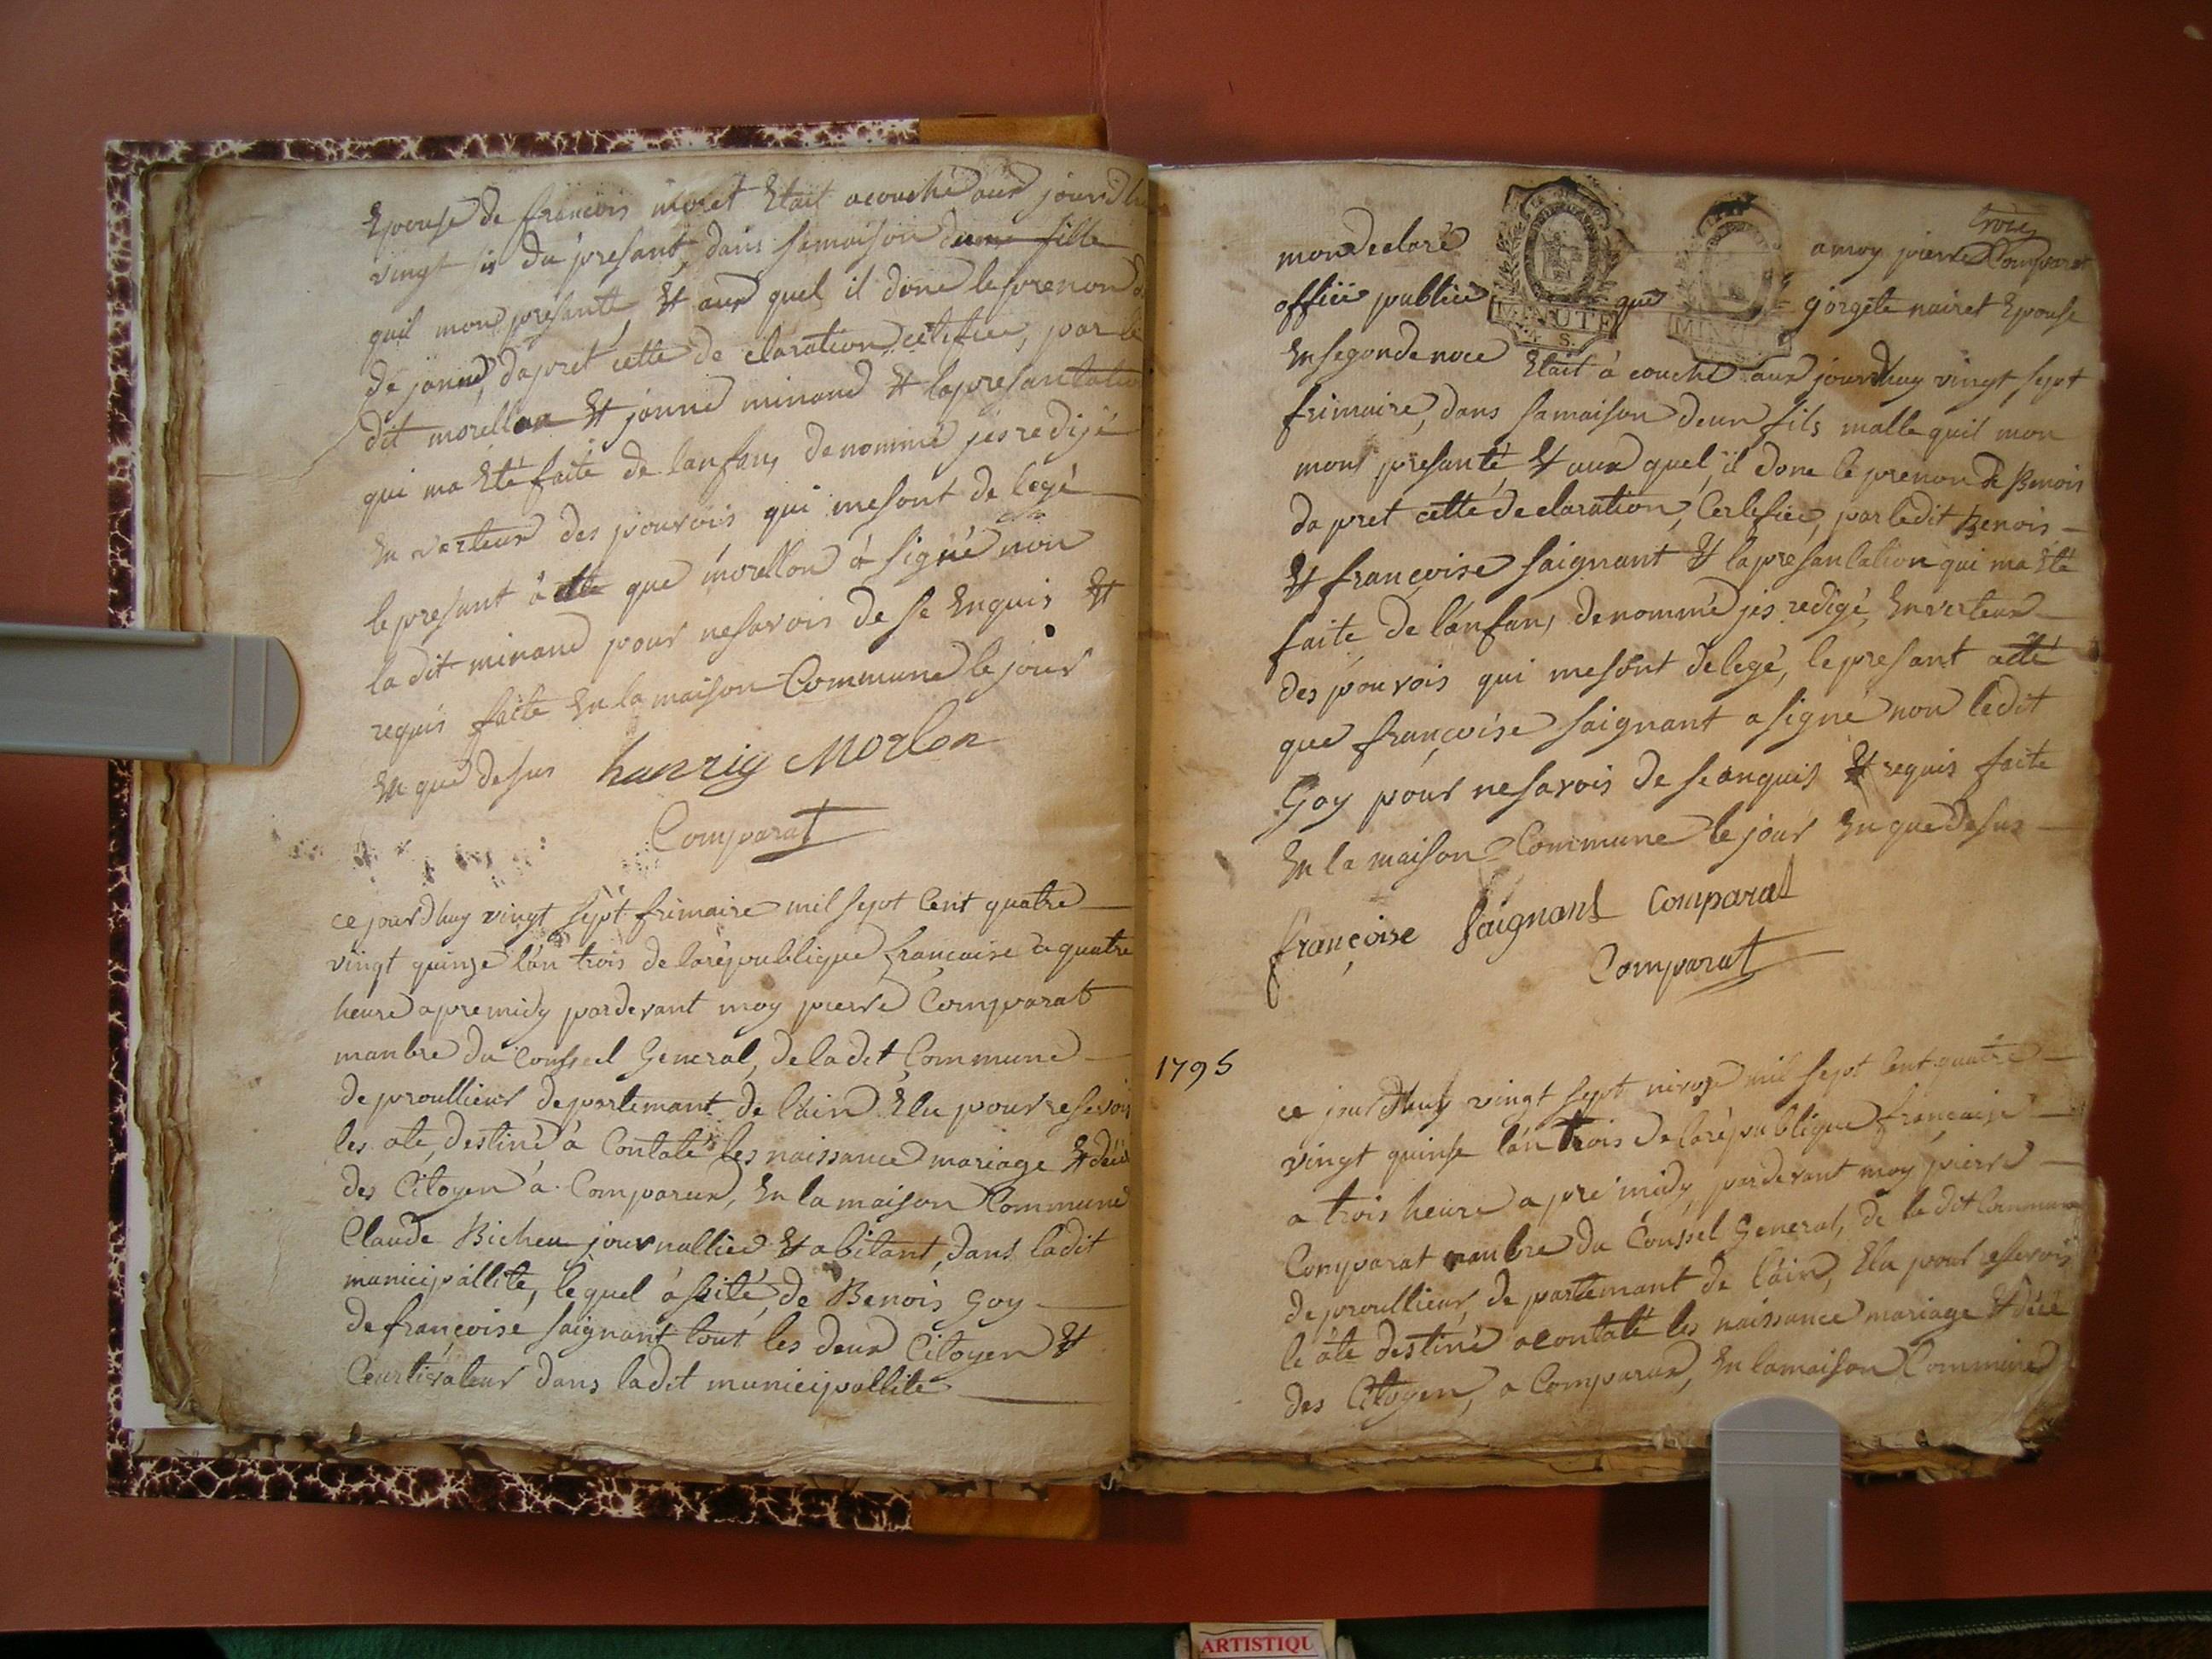 Epouse de francois moret Etait acouché aux jourdhu
vingt six du presant, dans samaison dune fille
quil mon presanté, et aux quel il done le prenon de
de janne, dapret cette de claration, cetifiee, par le
dit morellon et janne minand et la presantation
qui ma Eté faite de lanfan, denommé jés redijé
En verteux des pouvois qui mesont de legé
le presant a cte que morellon à signé non
la dit minand pour nesavois de se Enquis et
requis faite En la maison Commune le jour
En que desus hanrig Morlon
Comparat
ce jourdhuy vingt sept frimaire mil sept Cent quatre
vingt quinze lán trois de la république francaise a quatre
heure apremidy pardevant moy pierre Comparat
manbre du Conseel General, de la dit Commune
de proullieux departemant de láin Elu pour resevois
les ate, destiné à Contaté les naissance mariage et décé
des Citoyen à Comparux, En la maison Commune
Claude Bicheu journallied et abitant, dans ladit
municipallité, le quel à sité, de Benois Goy
de françoise saignant tout les deux Citoyen et
Ceurtivateur dans ladit municipallité
trois
mon declaré amoy pierre Comparat
officié publicé que gorgete nairet Epouse
MINUTE
MINUTE
Ensegondenoce Etait à couché aux jourdhuy vingt sept
frimaire, dans samaison deun fils malle quil mon
mont presanté et aux quel, il done le prenon de Benois
dapret cette declaration, Certefiée, par ledit Benois
et françoise saignant et lapresantation qui ma Eté
faite de lánfan, denommé jes redigé, Enverteux
des pouvois qui mesont delegé, le presant acté
que françoise saignant a signé non ledit
Goy pour nesavois de seanquis et requis faite
En la maison Commune le jour En que desus
françoise saignant Comparat
Comparat
1795
ce jourdhuy vingt sept nivoze mil sept Cent quatre
vingt quinse lán trois de la république francaise
a trois heure apré midy, pardevant moy pierre
Comparat manbre du Conseel General, de la dit Commune
de proullieux, de partemant de láin, Elu pour resevois
lé áte destiné acontaté les naissance mariage et décé
des Citoyen, a Comparux, En lamaison Commune
ARTISTIQU